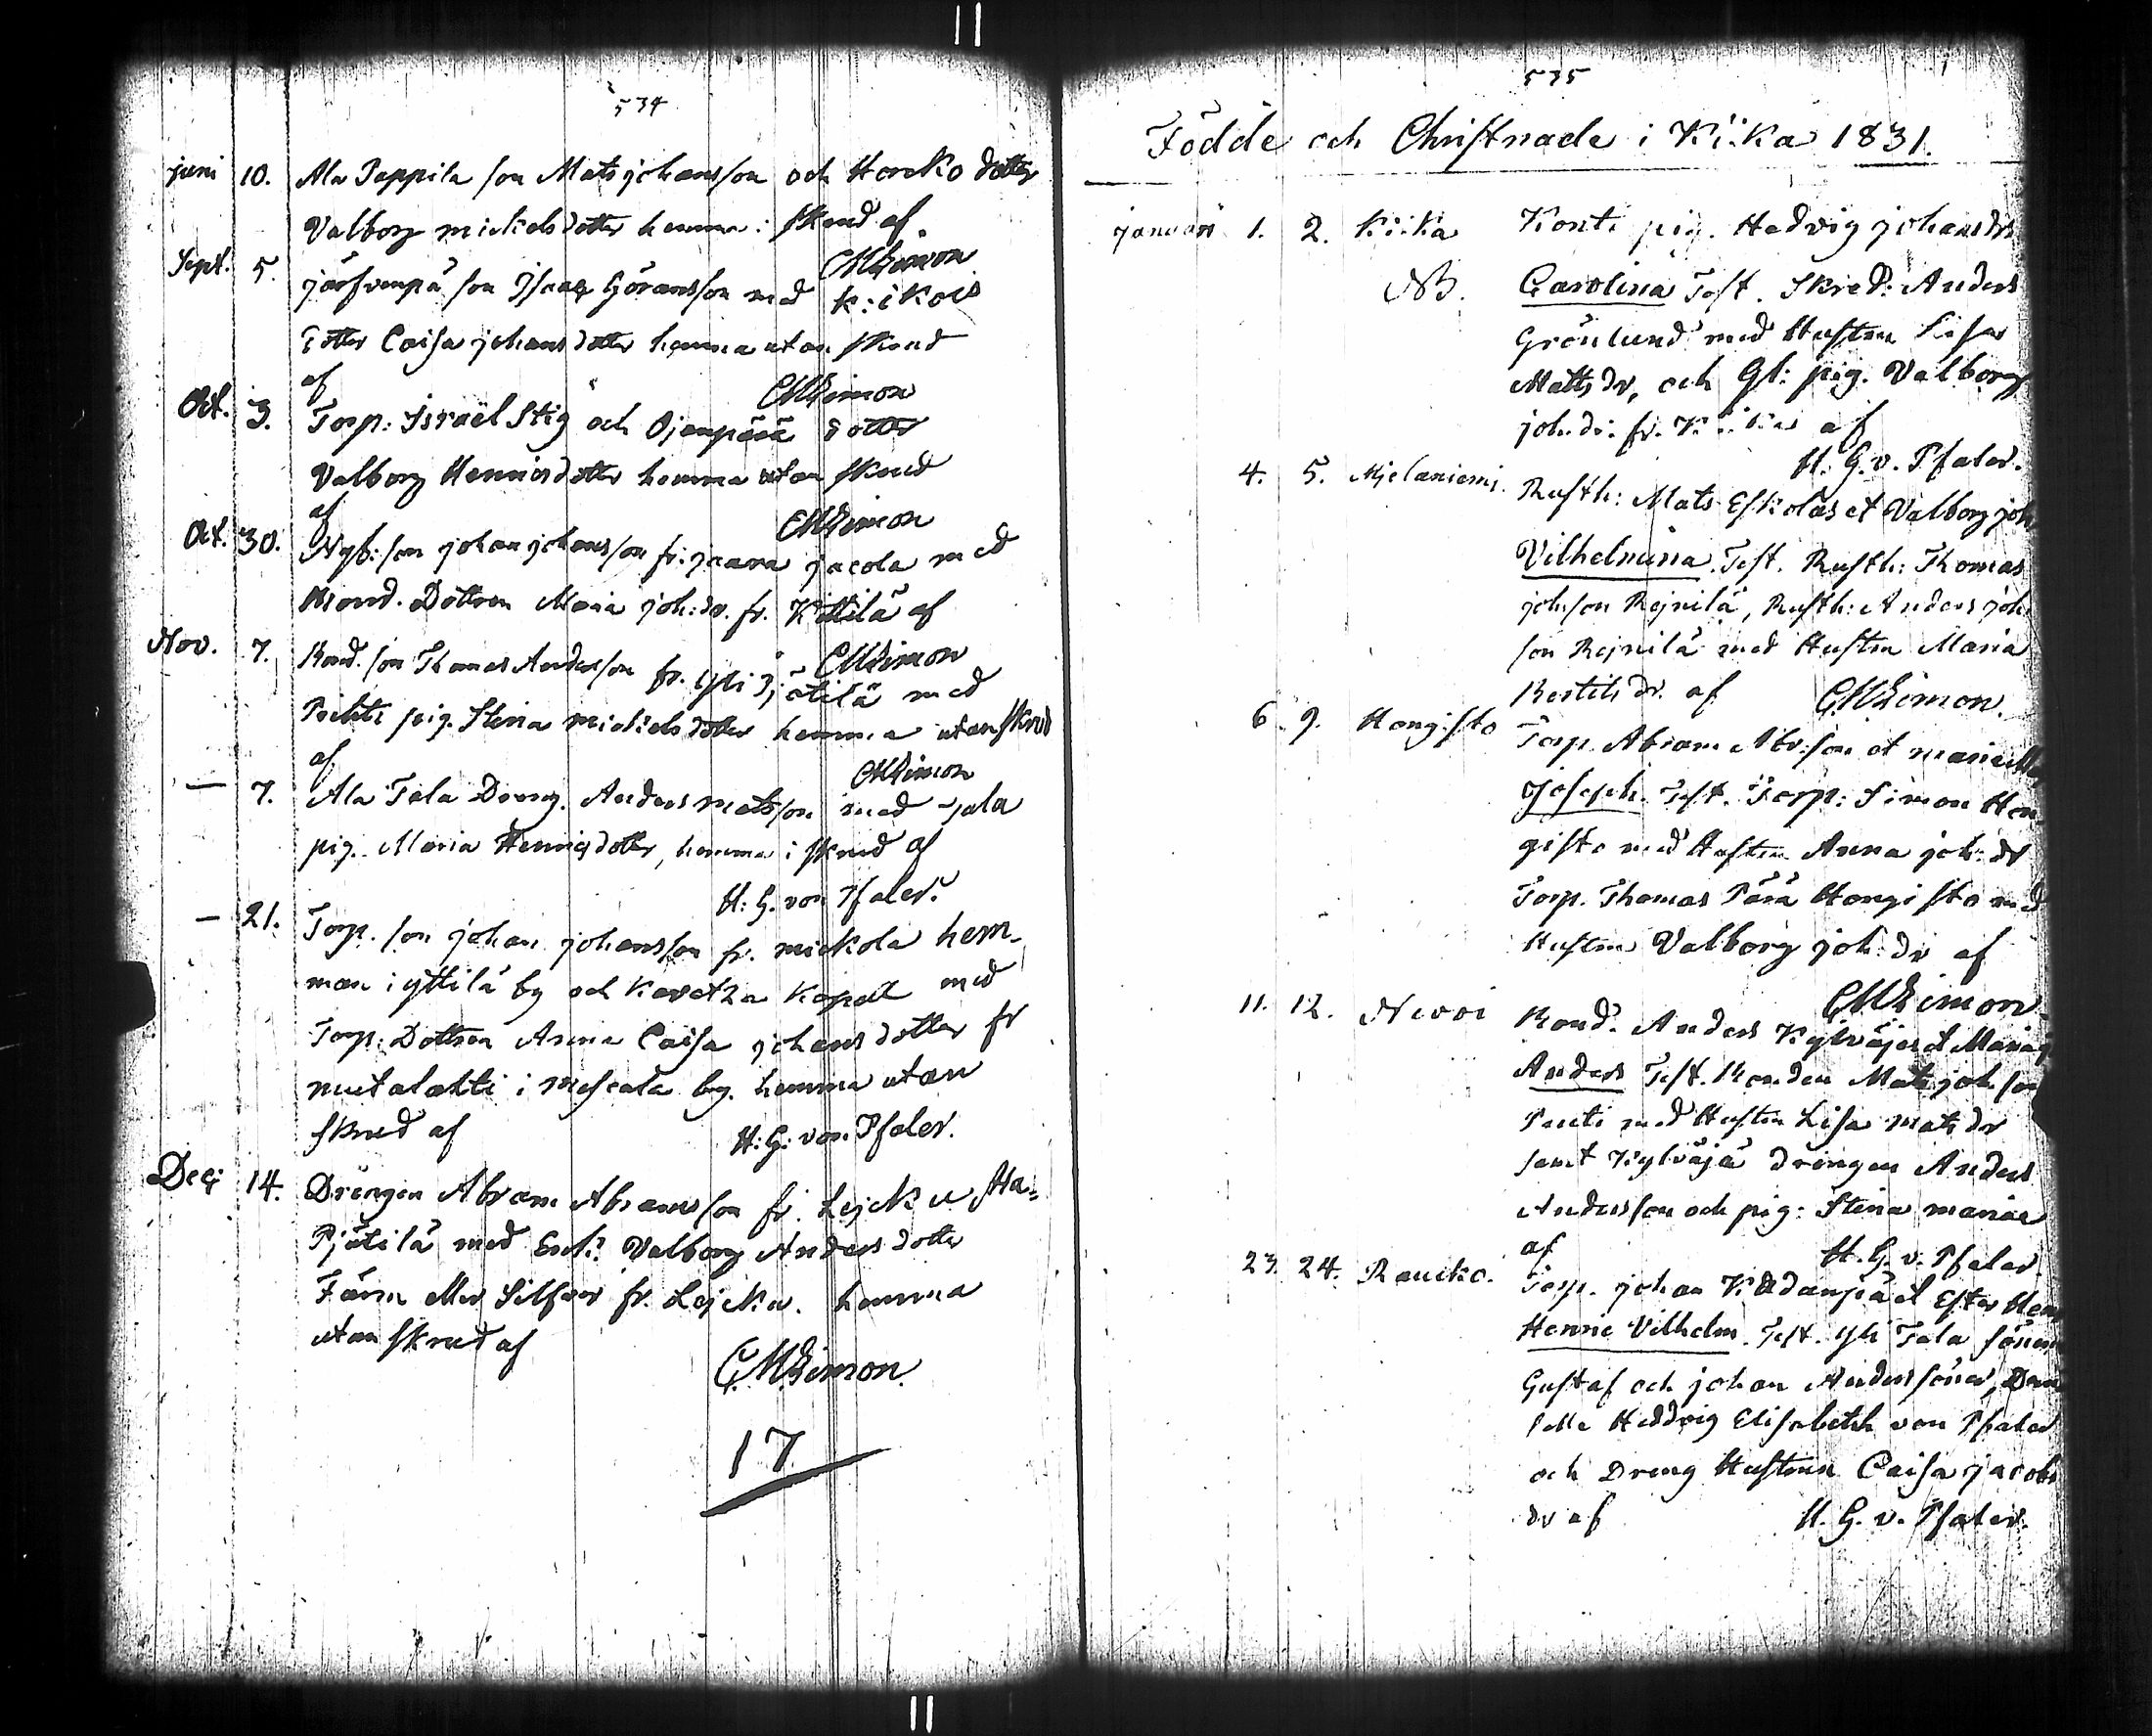 534
juni 10. Ala Pappila son Mats johansson och Honko dotter
Valborg mickelsdotter hemma i skrud af
CMZimon
Sept. 5. järfvenpä son Isaac Göransson med K:ikois
dotter Caisa johansdotter hemma utan skrud
af CMZimon
Oct. 3. Torp: Israël Stig och Ojanpää dotter
Valborg Henricsdotter hemma utan skrud
af CMZimon
Oct. 30. Nyb: son johan johansson fr: jaara jacola med
Bond. Dottren Maria joh:dr. fr. Kittilä af
CMZimon
Nov. 7. Bond. son Thomas Andersson fr. Yli Pjätilä med
Pentti pig. Stina mickelsdotter hemma utan skrud
af CMZimon
— 7. Ala Tala Dreng. Anders matsson med
pig. Maria Henricsdotter, hemma i skrud af
H: G. von Pfaler.
— 21. Torp. son johan johansson fr. mickola hem-
man i yttilä by och Kavetza Kapell med
Torp: Dottren Anna Caisa johansdotter fr
mutalahti i by. hemma utan
skrud af H: G: von Pfaler.
Dec: 14. Drengen Abram Abramsson fr. Lejcku Ala-
Pjätilä med Enk: Valborg Andersdotter
Färm eller Silfver fr. Lejcku. hemma
utan skrud af
C.MZimon.
17

535
Födde och Christnade i Kiika 1831.
januari 1. 2. Kiika Konti pig. Hedvig johansdr
NB. Carolina Test. Skred: Anders
Grönlund med Hustru Lisa
Matts dr, och Gl: pig. Valborg
joh. dr: fr. Kiika af
H. G. v. Pfaler.
4. 5. Mjelaniemi. Rusth: Mats Eskolas et Valborg joh
Vilhelmina. Test. Rusth: Thomas
johson Rejnilä, Rusth: Anders joh
son Rejnilä med Hustru Maria
Bertils dr. af CMZimon.
6. 9. Hongisto Torp. Abram Abr:son et maria
Joseph. Test. Torp: Simon Hon
gisto med Hustru Anna joh: dr
Torp. Thomas Pärä Hongisto med
Hustru Valborg joh: dr af
CMZimon
11. 12. Novi Bond. Anders Kylväjes et Maria
Anders Test. Bonden Mats joh son
Penti med Hustru Lisa Mats dr
samt Kylväjä drengen Anders
Andersson och pig: Stina maria
af H. G. v. Pfaler.
23. 24. Raucko. Torp. johan Kiidanpää et Ester Hen
Henric Vilhelm. Test. Yli Tala söner
Gustaf och johan Anderssöner, Dem
selle Heddvig Elisabeth von Pfaler
och Dreng Hustrun Caisa jacobs
dr af H. G. v. Pfaler.